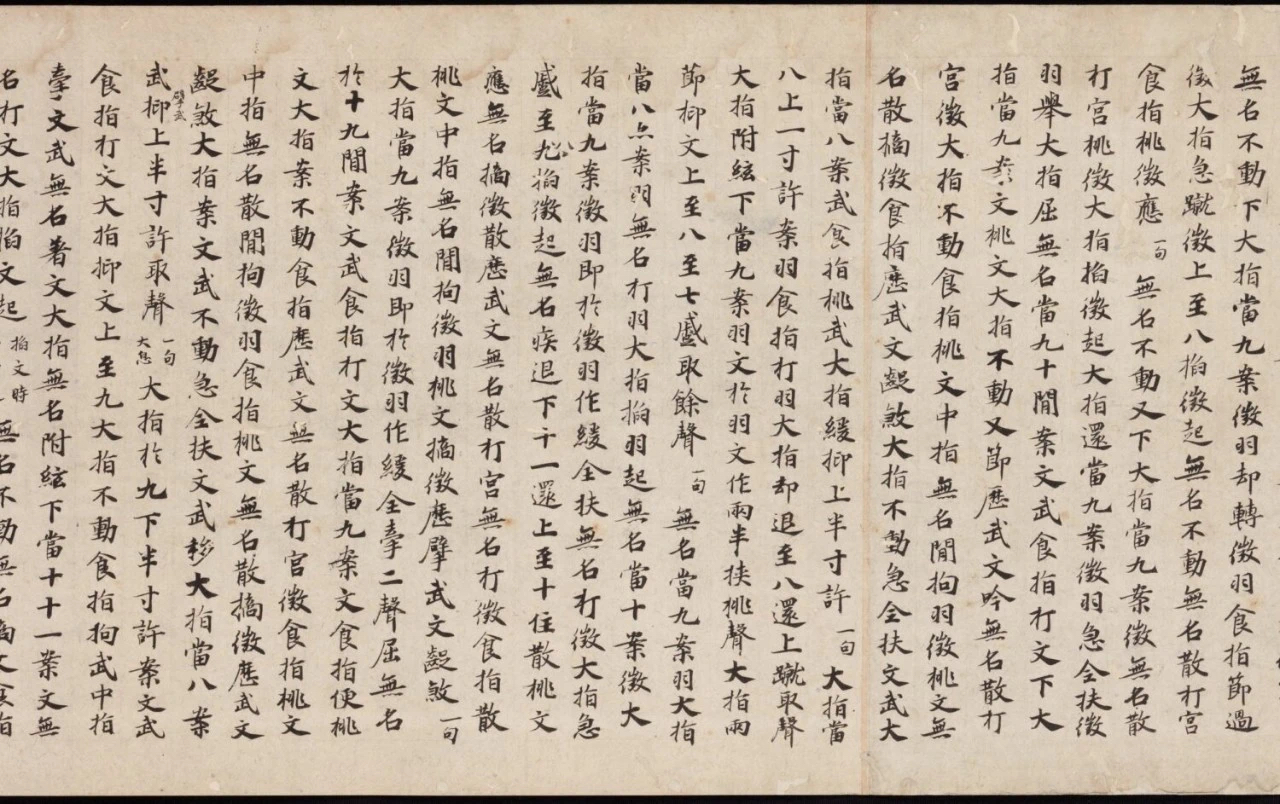 無名不動下大指當九案徵羽却轉徵羽食指節過
徵大指急蹴徵上至八掐徵起無名不動無名散打宮
食指桃徵應一句無名不動又下大指當九案徵無名散
打宮桃徵大指掐徵起大指還當九案徵羽急全扶徵
羽舉大指屈無名當九十間案文武食指打文下大
指當九案文桃文大指不動又節歷武文吟無名散打
宮徵大指不動食指桃文中指無名間拘羽徵桃文無
名散擿徵食指歷武文齪煞大指不動急全扶文武大
指當八案武食指桃武大指緩抑上半寸許一句大指當
八上一寸許案羽食指打羽大指却退至八還上蹴取聲
大指附絃下當九案羽文於羽文作兩半挾桃聲大指兩
節抑文上至八至七蹙取餘聲一句無名當九案羽大指
當八案羽無名打羽大指掐羽起無名當十案徵大
指當九案徵羽即於徵羽作緩全扶無名打徵大指急
蹙至九掐徵起無名疾退下十一還上至十住散桃文
應無名擿徵散應武文無名散打宮無名打徵食指散
桃文中指無名間拘徵羽桃文擿徵歷擘武文齪煞一句
大指當九案徵羽即於徵羽作緩全𨎬二聲屈無名
於十九間案文武食指打文大指當九案文食指便桃
文大指案不動食指歷武文無名散打宮徵食指桃文
中指無名散間拘徵羽食指桃文無名散擿徵歷武文
齪煞大指案文武不動急全扶文武移大指當八案
武抑上半寸許取聲一句大指於九下半寸許案文武
食指打文大指抑文上至九大指不動食指拘武中指
文武無名著文大指無名附絃下當十十一案文無
名打文大指掐文起掐文時無名不動無名擿文食指